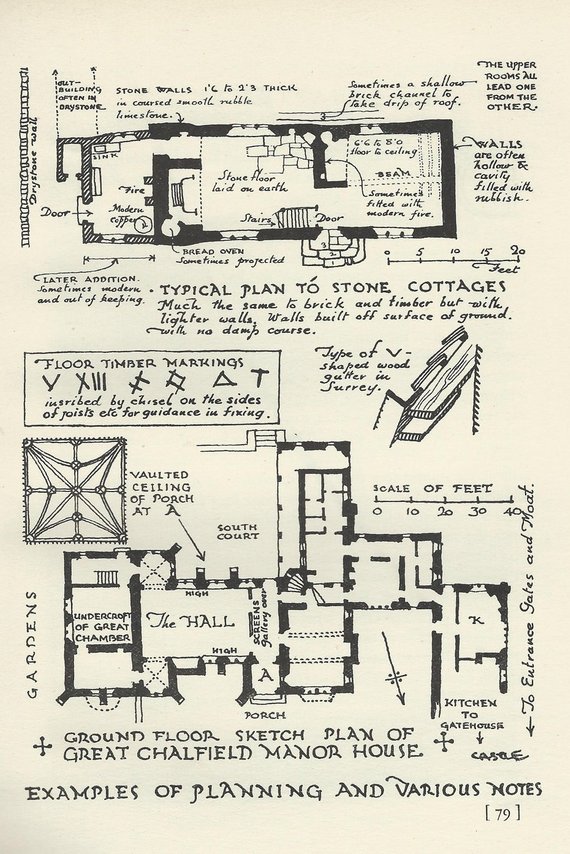 OUT-
BUILDING
OFTEN IN
DRYSTONE
STONE WALLS 1'6 to 2'3 THICK
in coursed smooth rubble
limestone.
Sometimes a shallow
brick channel to
take drip of roof.
THE UPPER
ROOMS ALL
LEAD ONE
FROM THE
OTHER.
Drystone Wall
SINK
Fire
Door
Modern
Copper
Stone floor
laid on earth
6'6 to 8'0
floor to ceiling
BEAM
Sometimes
filled with
modern fire.
WALLS
are often
hollow &
cavity
filled with
rubbish.
Stairs
Door
BREAD OVEN
Sometimes projected
LATER ADDITION.
Sometimes modern
and out of keeping.
0 5 10 15 20
Feet
· TYPICAL PLAN TO STONE COTTAGES
Much the same to brick and timber but with
lighter walls. Walls built off surface of ground.
with no damp course.
FLOOR TIMBER MARKINGS
V XIII
insribed by chisel on the sides
of joists etc for guidance in fixing.
Type of V-
shaped wood
gutter in
Surrey.
VAULTED
CEILING
OF PORCH
AT A
SOUTH
COURT
SCALE OF FEET
0 10 20 30 40
GARDENS
UNDERCROFT
OF GREAT
CHAMBER
HIGH
The HALL
HIGH
SCREENS
Gallery over
A
PORCH
K
KITCHEN
TO
GATEHOUSE
To Entrance Gates and Moat.
GROUND FLOOR SKETCH PLAN OF
GREAT CHALFIELD MANOR HOUSE
EXAMPLES OF PLANNING AND VARIOUS NOTES
[ 79 ]